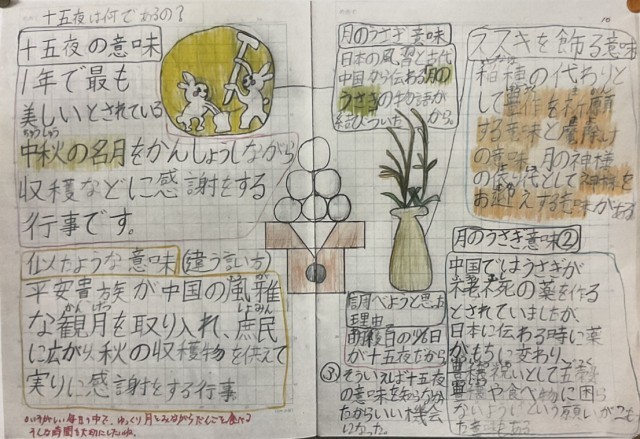 十五夜は何であるの？
十五夜の意味
1年で最も
美しいとされている
ちゅうしゅう
中秋の名月をかんしょうしながら
収穫などに感謝をする
行事です。
似たような意味(違う言い方)
平安貴族が中国の風雅
な観月を取り入れ、庶民
に広がり、秋の収穫物を供えて
実りに感謝をする行事
月のうさぎ意味
日本の風習と古代
中国から伝わる月の
うさぎの物語が
結びついたから。
調べようと思った
理由
が十五夜だから
③そういえば十五夜
の意味を知らなかっ
たからいい機会
10
ススキを飾る意味
稲穂の代わりと
して豊作を祈願
する意味と魔除け
の意味、月の神様
の依り代として神様を
お迎えする意味がある
月のうさぎ意味②
中国ではうさぎが
不老不死の薬を作る
とされていましたが、
日本に伝わる時に薬
がもちに変わり、
豊穣祝いとして五穀
豊穣や食べ物に困ら
ないようにという願いがこも